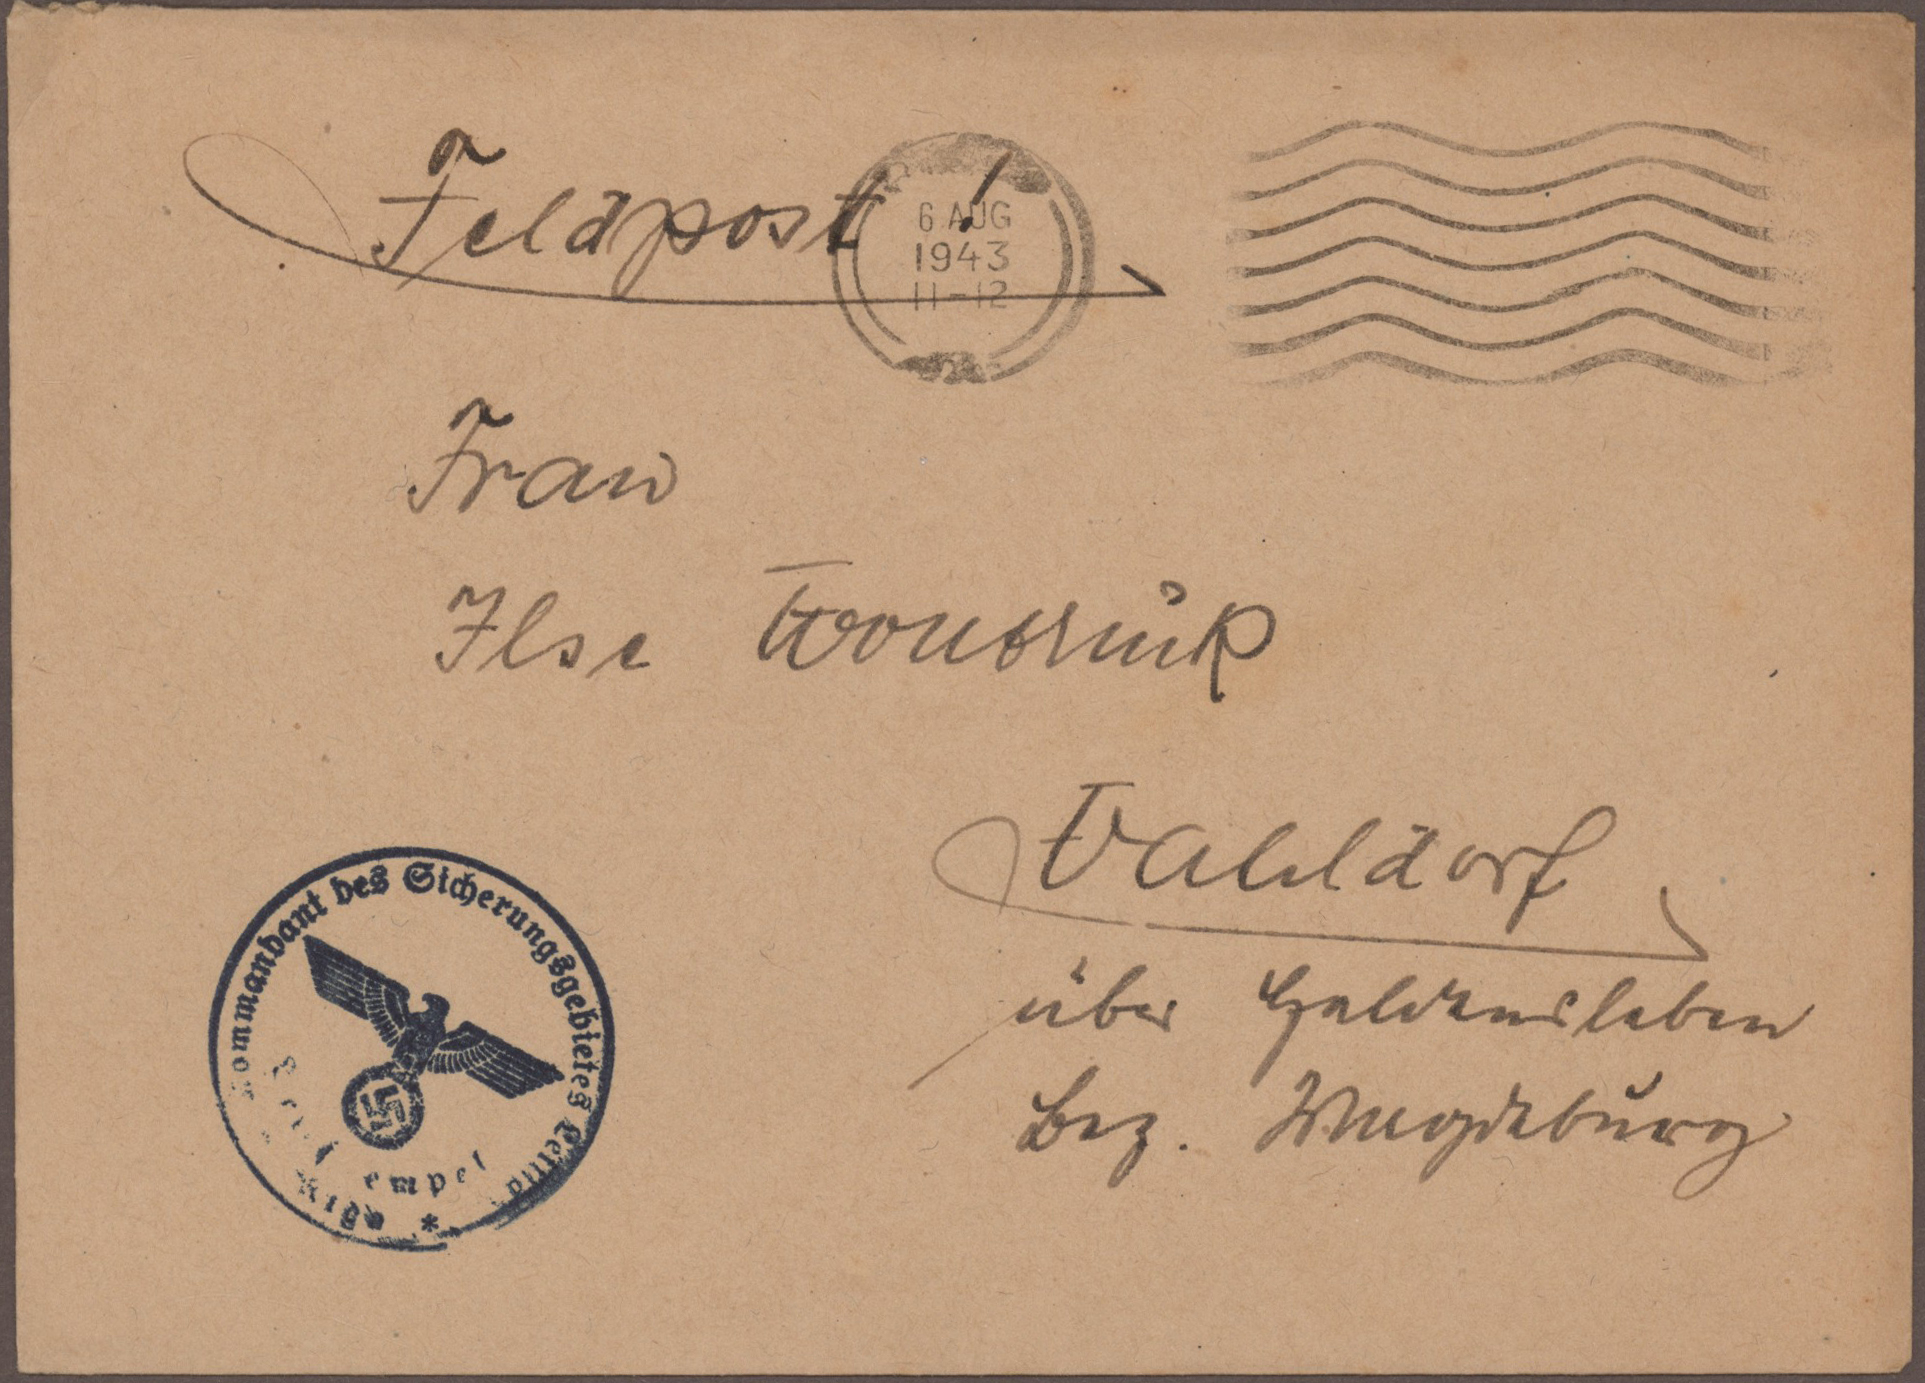 Feldpost!
6 AUG
1943
11-12
Frau
Ilse
Vahldorf
über Haldensleben
Bez. Magdeburg
Kommandant des Sicherungsgebietes Lettland
* Riga